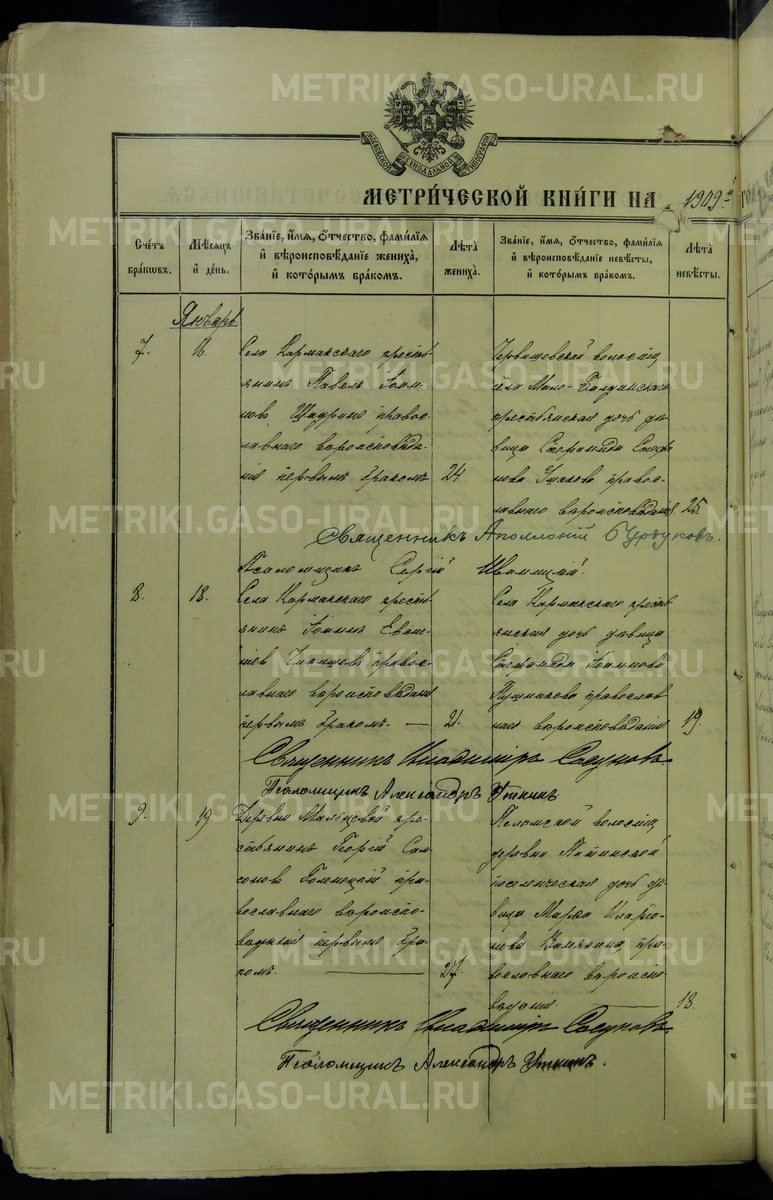 МОСКОВСКОЙ СУНОДАЛЬНОЙ ТИПОГРАФІИ
МЕТРИ́ЧЕСКОЙ КНИ́ГИ НА 1909й ГО
Сче́тъ бра́ковъ.
Мѣ́сяцъ и҆ де́нь.
Зва́нїе, и҆́мѧ, ѻ҆́тчество, фами́лїѧ и҆ вѣроисповѣ́данїе жениха̀, и҆ кото́рымъ бра́комъ.
Лѣ́та жениха̀.
Зва́нїе, и҆́мѧ, ѻ҆́тчество, фами́лїѧ и҆ вѣроисповѣ́данїе невѣ́сты, и҆ кото́рымъ бра́комъ.
Лѣ́та невѣ́сты.
Январь
7.
Села Кармакскаго кресть
янинъ Павелъ Іоан
новъ Шадринъ правос
лавнаго вѣроисповѣда
нія первымъ бракомъ
24.
волости
села Мало-Балдинскаго
крестьянская дочь дѣ
вица Стефа
нова Ушакова правос
лавнаго вѣроисповѣданія.
25
Священникъ Аполлоній Бурдуковъ.
Псаломщикъ Сергій Ивановъ
8.
18.
Села Кармакскаго кресть
янинъ Іоаннъ
Чикишевъ правос
лавнаго вѣроисповѣданія
первымъ бракомъ. —
21.
Села Кармакскаго кресть
янская дочь дѣвица
Іоаннова
Пушникова православ
наго вѣроисповѣданія
19.
Священникъ Владиміръ Сосуновъ.
Псаломщикъ Александръ Уткинъ
9.
19
Деревни Мальцовой кре
стьянинъ Георгій Сам
соновъ пра
вославнаго вѣроиспо
вѣданія первымъ бра
комъ. —
27.
волости
деревни
поселенческая дочь дѣ
вица Марѳа Иларіо
нова пра
вославнаго вѣроиспо
вѣданія.
18.
Священникъ Владиміръ Сосуновъ.
Псаломщикъ Александръ Уткинъ.
METRIKI.GASO-URAL.RU